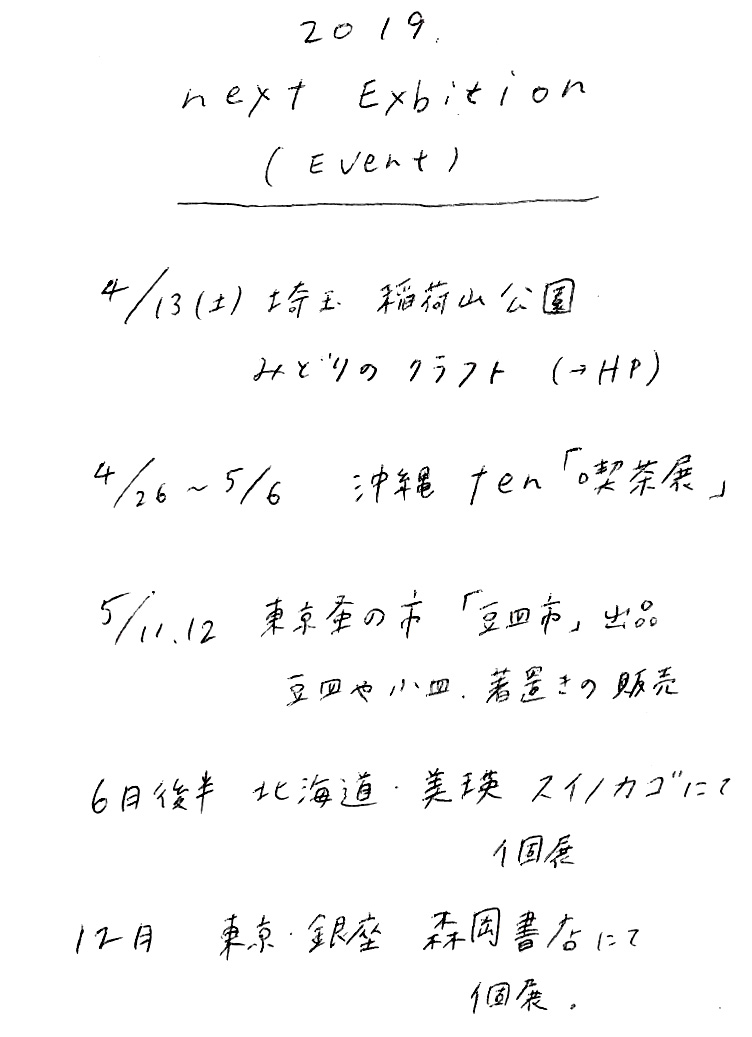 2019.
next Exbition
(Event)
4/13(土) 埼玉 稲荷山公園
みどりのクラフト (→HP)
4/26~5/6 沖縄 ten「喫茶展」
5/11.12 東京蚤の市「豆皿市」出品
豆皿や小皿、箸置きの販売
6月後半 北海道・美瑛 スイノカゴにて
個展
12月 東京・銀座 森岡書店にて
個展。